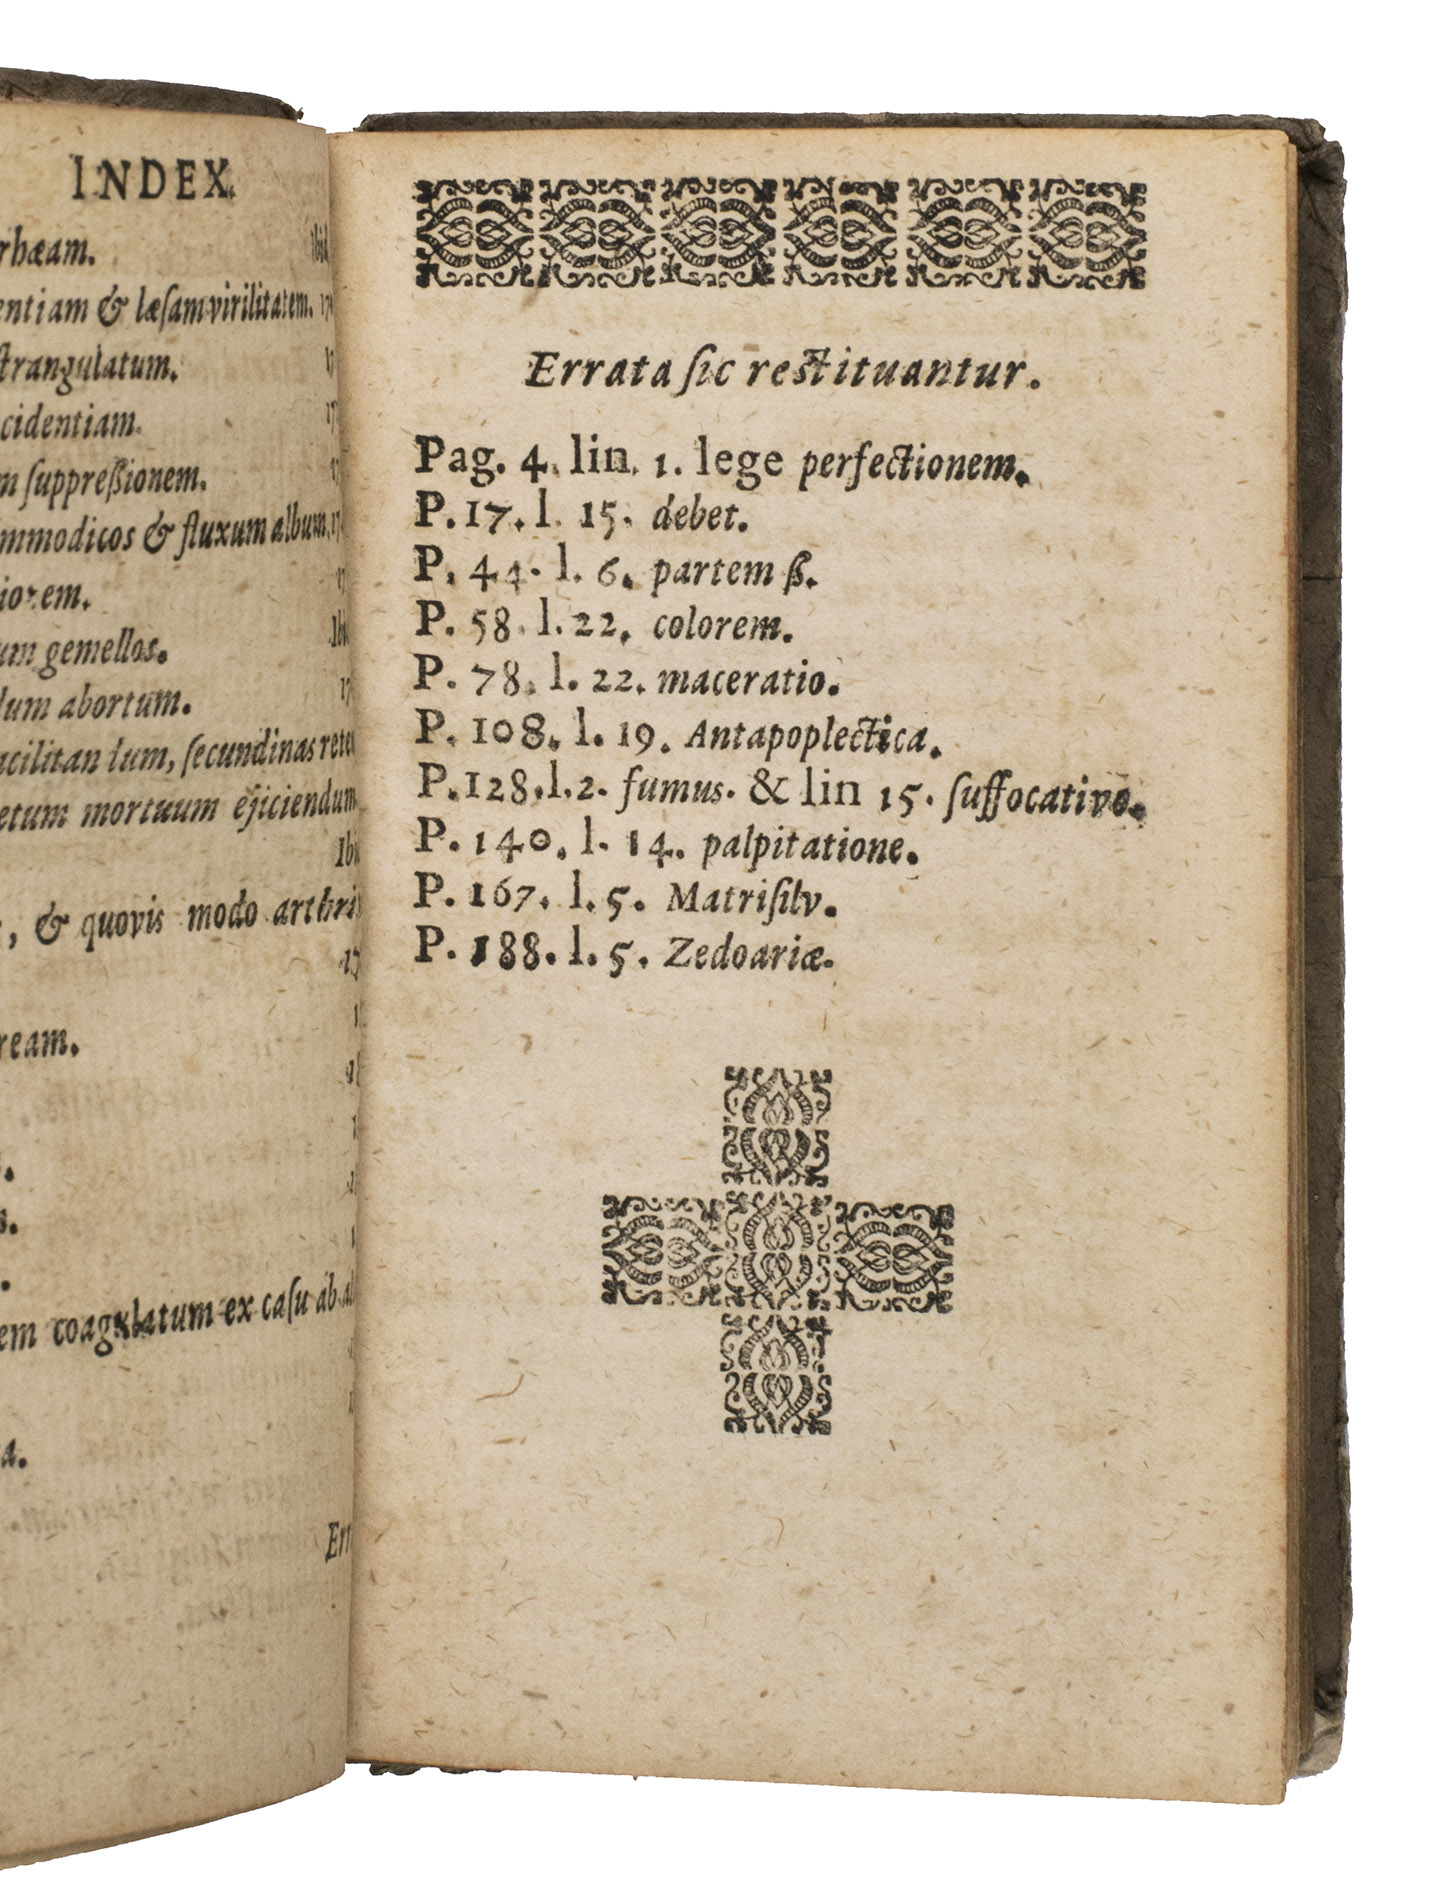 INDEX.
rhæam. ibid
entiam & læſam virilitatem. 17
ſtrangulatum. 1
cidentiam. 17
m ſuppreßionem. 1
mmodicos & fluxum album. 1
iorem. 1
um gemellos. Ibi
dum abortum. 1
acilitandum, ſecundinas rete
etum mortuum ejiciendum
Ibi
, & quovis modo arthri
17
1
ream.
em coagulatum ex caſu ab al
a.
Err
Errata ſic reſtituantur.
Pag. 4. lin. 1. lege perfectionem.
P. 17. l. 15. debet.
P. 44. l. 6. partem ß.
P. 58. l. 22. colorem.
P. 78. l. 22. maceratio.
P. 108. l. 19. Antapoplectica.
P. 128. l. 2. fumus. & lin 15. ſuffocativo.
P. 140. l. 14. palpitatione.
P. 167. l. 5. Matriſilv.
P. 188. l. 5. Zedoariæ.